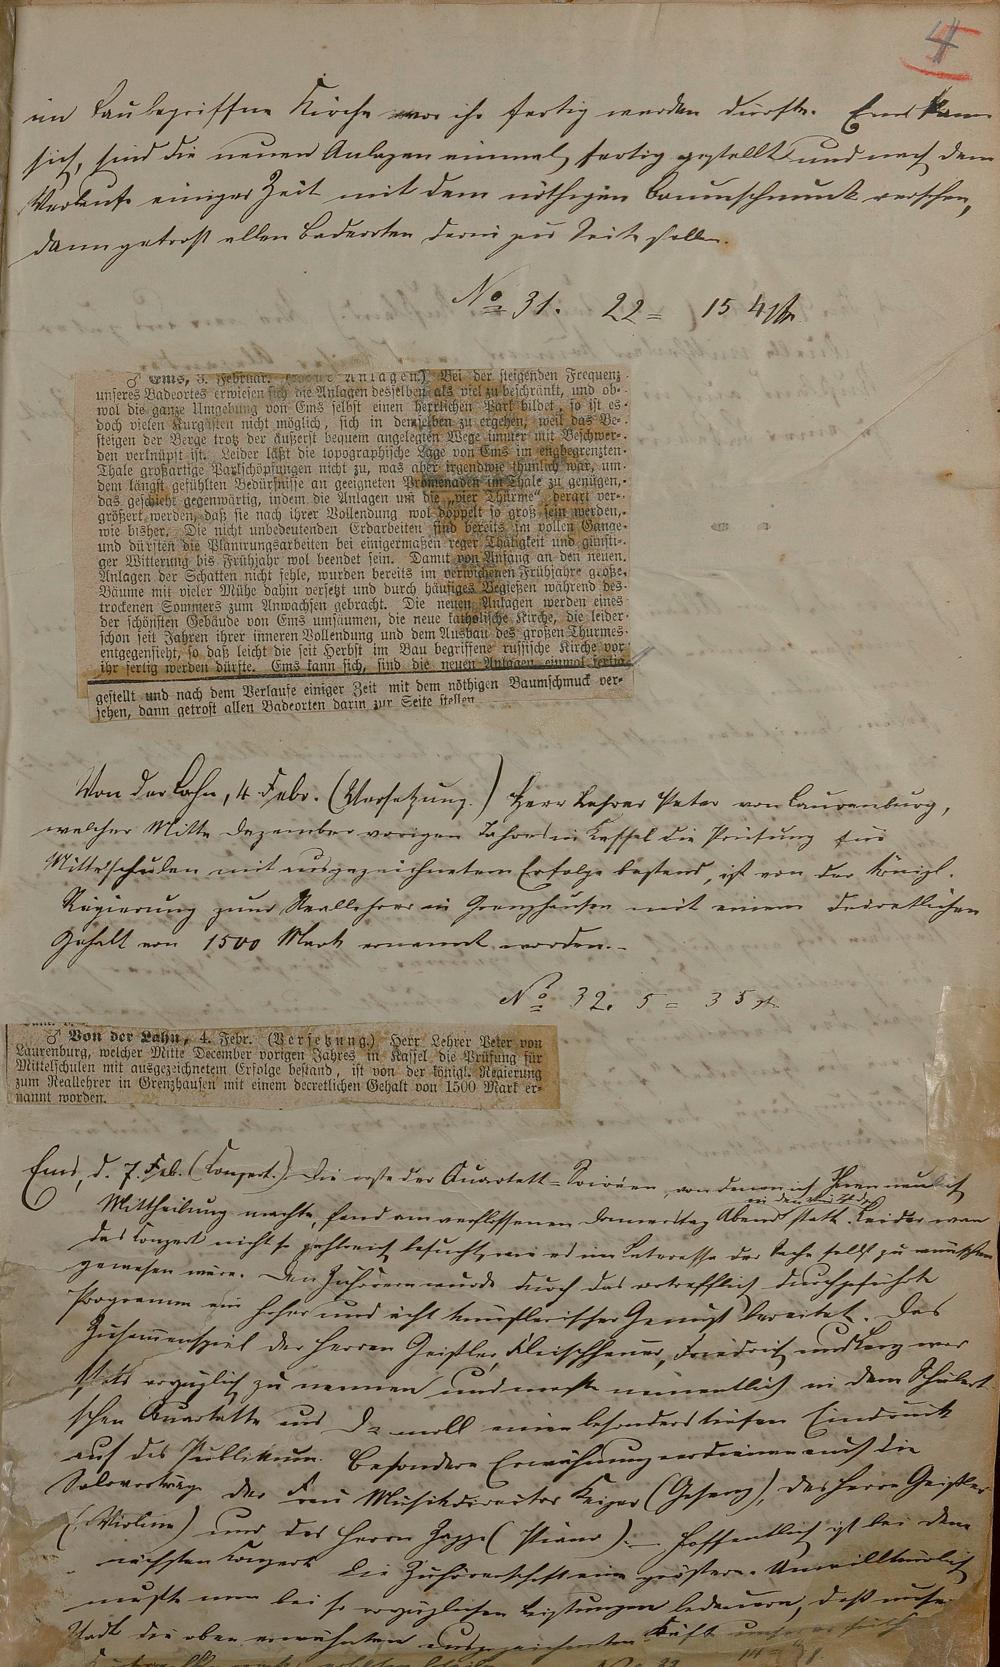 4
im Bau begriffene Kirche vor ihr fertig werden dürfte. Ems kann
sich, sind die neuen Anlagen einmal fertig gestellt und nach dem
Verlaufe einiger Zeit mit dem nöthigen Baumschmuck versehen,
dann getrost allen Badeorten darin zur Seite stellen.
No 31. 22 = 154
♂ Ems, 3. Februar. (Neue Anlagen.) Bei der steigenden Frequenz
unseres Badeortes erwiesen sich die Anlagen desselben als viel zu beschränkt, und ob-
wol die ganze Umgebung von Ems selbst einen herrlichen Park bildet, so ist es
doch vielen Kurgästen nicht möglich, sich in demselben zu ergehen, weil das Be-
steigen der Berge trotz der äußerst bequem angelegten Wege immer mit Beschwer-
den verknüpft ist. Leider läßt die topographische Lage von Ems im engbegrenzten
Thale großartige Parkschöpfungen nicht zu, was aber irgendwie thunlich war, um
dem längst gefühlten Bedürfnisse an geeigneten Promenaden im Thale zu genügen,
das geschieht gegenwärtig, indem die Anlagen um die „vier Thürme“ derart ver-
größert werden, daß sie nach ihrer Vollendung wol doppelt so groß sein werden,
wie bisher. Die nicht unbedeutenden Erdarbeiten sind bereits im vollen Gange
und dürften die Planirungsarbeiten bei einigermaßen reger Thätigkeit und günsti-
ger Witterung bis Frühjahr wol beendet sein. Damit von Anfang an den neuen
Anlagen der Schatten nicht fehle, wurden bereits im verwichenen Frühjahre große
Bäume mit vieler Mühe dahin versetzt und durch häufiges Begießen während des
trockenen Sommers zum Anwachsen gebracht. Die neuen Anlagen werden eines
der schönsten Gebäude von Ems umsäumen, die neue katholische Kirche, die leider
schon seit Jahren ihrer inneren Vollendung und dem Ausbau des großen Thurmes
entgegensieht, so daß leicht die seit Herbst im Bau begriffene russische Kirche vor
ihr fertig werden dürfte. Ems kann sich, sind die neuen Anlagen einmal fertig
gestellt und nach dem Verlaufe einiger Zeit mit dem nöthigen Baumschmuck ver-
sehen, dann getrost allen Badeorten darin zur Seite stellen.
Von der Lahn, 4. Febr. (Versetzung.) Herr Lehrer Peter von Laurenburg,
welcher Mitte Dezember vorigen Jahres in Kassel die Prüfung für
Mittelschulen mit ausgezeichnetem Erfolge bestand, ist von der Königl.
Regierung zum Reallehrer in Grenzhausen mit einem decretlichen
Gehalt von 1500 Mark ernannt worden.
No 32. 5 = 35
♂ Von der Lahn, 4. Febr. (Versetzung.) Herr Lehrer Peter von
Laurenburg, welcher Mitte December vorigen Jahres in Kassel die Prüfung für
Mittelschulen mit ausgezeichnetem Erfolge bestand, ist von der königl. Regierung
zum Reallehrer in Grenzhausen mit einem decretlichen Gehalt von 1500 Mark er-
nannt worden.
Ems, d. 7. Feb. (Konzert.) Die erste der Quartett-Soiréen, von denen ich Ihnen neulich
Mittheilung machte, fand am verflossenen Donnerstag Abend statt. Leider war
das Konzert nicht so zahlreich besucht, wie es im Interesse der Sache selbst zu wünschen
gewesen wäre. Den Zuhörern wurde durch das vortrefflich durchgeführte
Programm ein hoher und ächt künstlerischer Genuß bereitet. Das
Zusammenspiel der Herren Geißler, Fleischhauer, Friedrich und war
vorzüglich zu nennen und machte namentlich in dem Schubert
schen Quartette aus D-moll einen besonders tiefen Eindruck
auf das Publikum. Besondere Erwähnung verdienen auch die
Solovorträge der Frau Musikdirector Keiper (Gesang), des Herrn Geißler
(Violine) und des Herrn Zappe (Piano). Hoffentlich ist bei dem
nächsten Konzert die Zuhörerschaft eine größere. Unwillkürlich
mußte man bei so vorzüglichen Leistungen bedauern, daß unsre
Stadt die oben erwähnten ausgezeichneten Kräfte